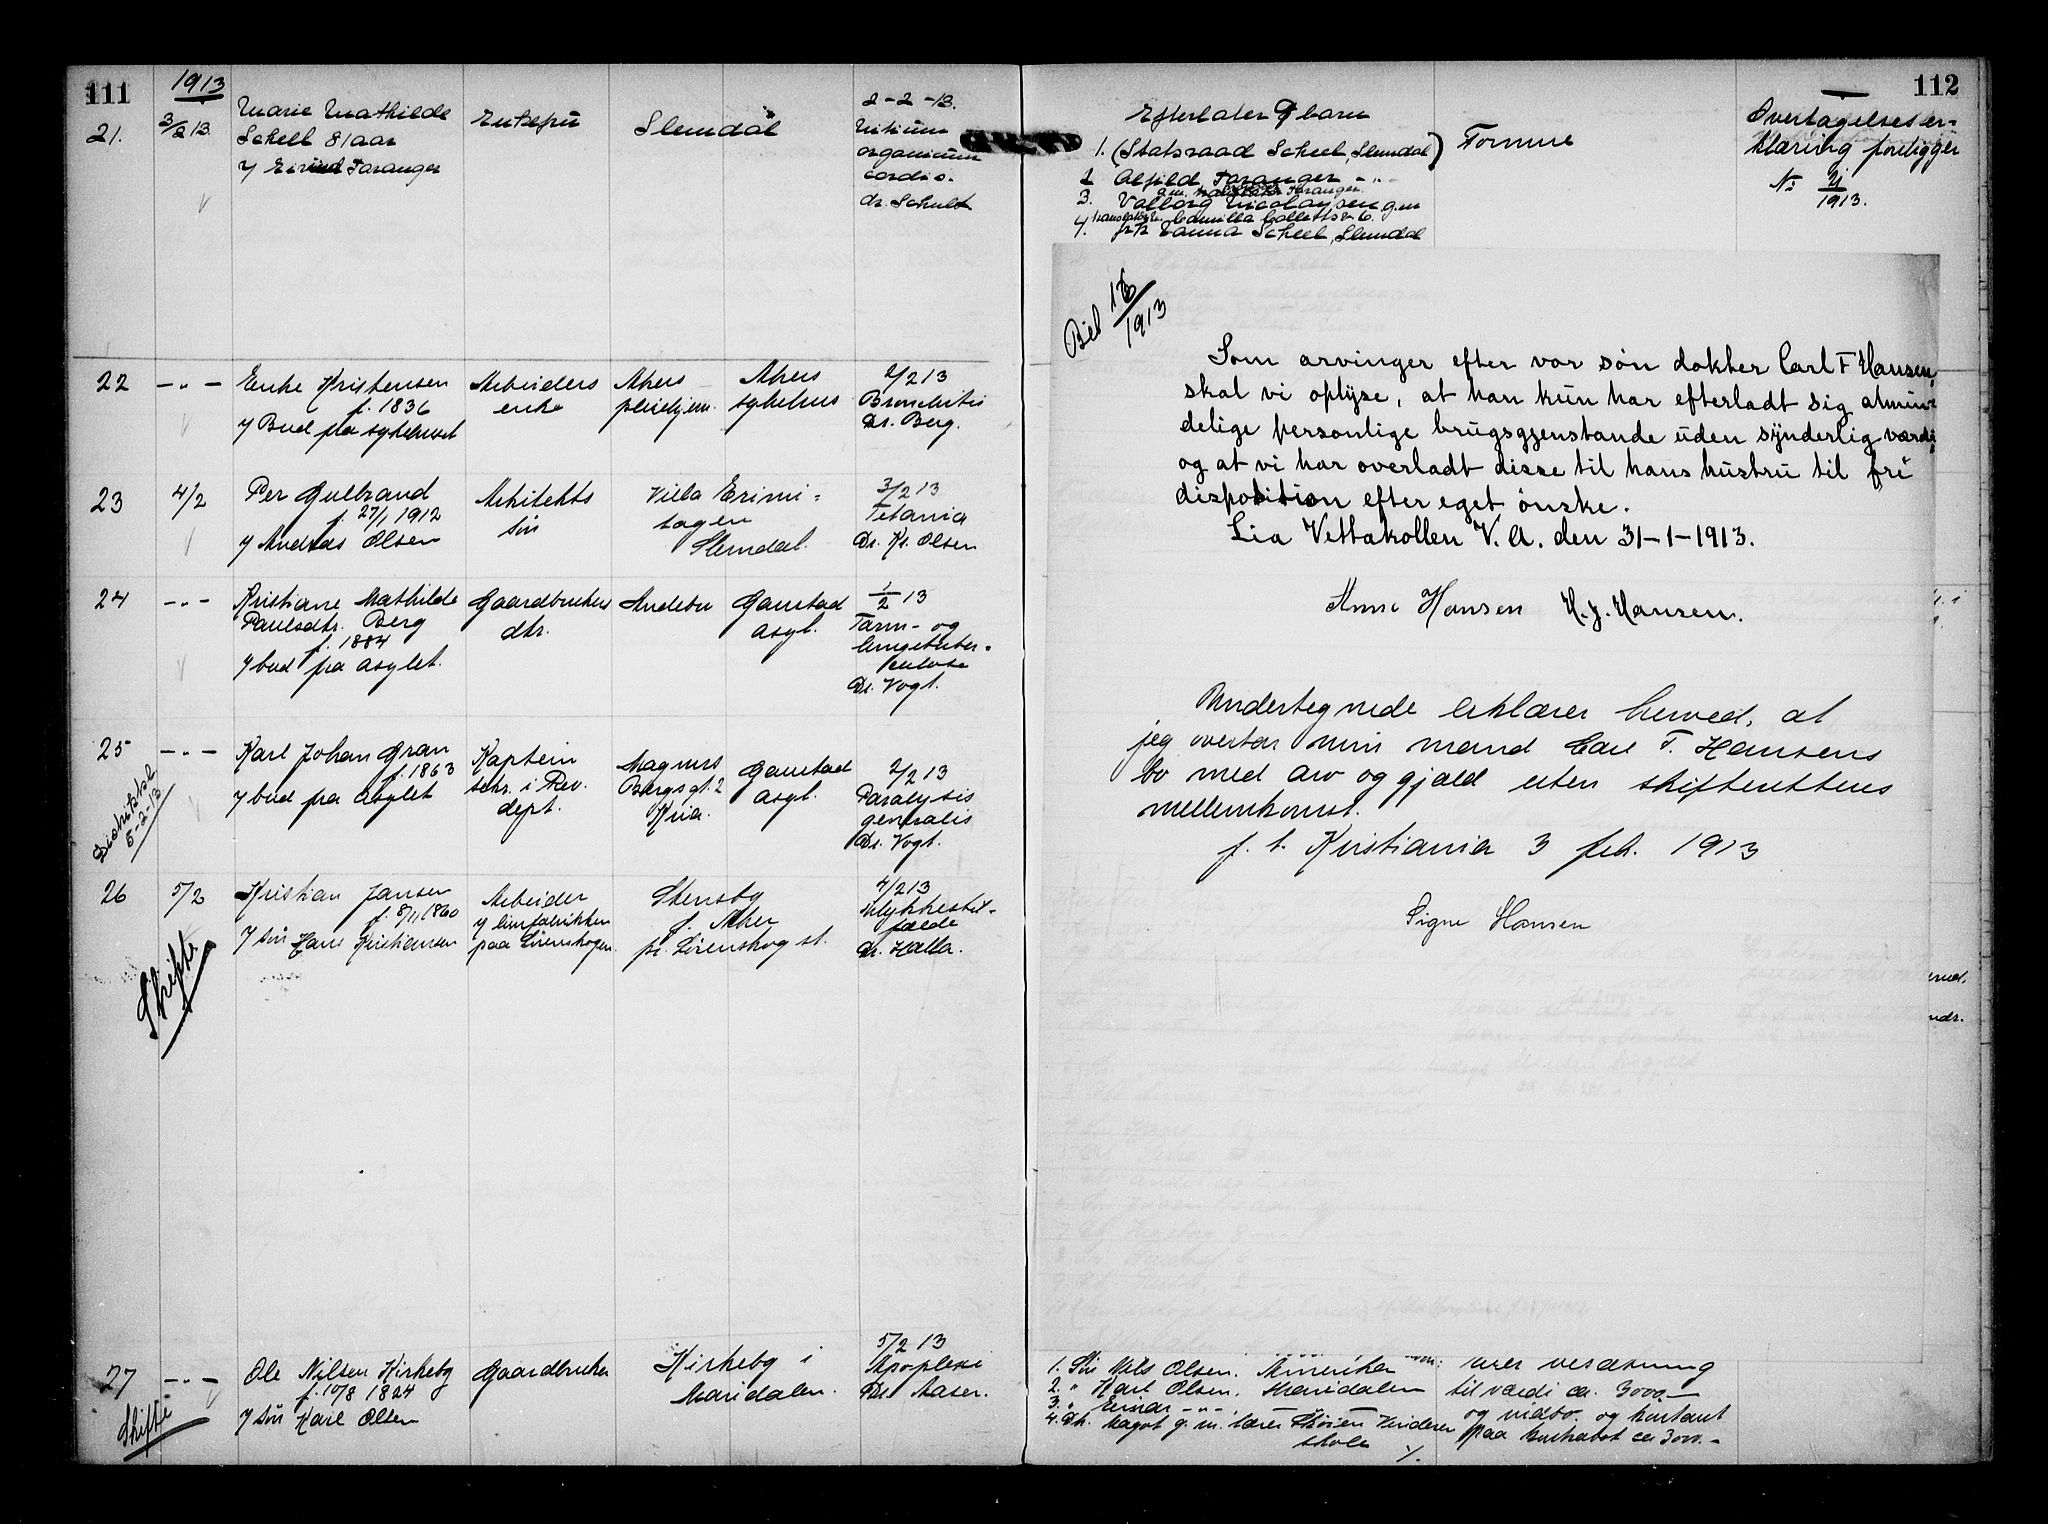 111
1913
21.
3/2 13
Marie Mathilde
Scheel 81 aar
Enkefru
Slemdal
2-2-13.
Vitium
organicum
cordis.
dr. Schult
22
—„—
Enke Kristensen
f. 1836
v/ Bud fra sykehuset
Arbeiders
enke
Akers
pleiehjem
Akers
sykehus
2/2 13
Bronchitis
Dr. Berg.
23
4/2
Per Gulbrand
f. 27/1 1912
v/ Andreas Olsen
Arkitekts
søn
Villa Erimi-
tagen
Slemdal.
3/2 13
Tetania
Dr. Kr. Olsen
24
—„—
Kristiane Mathilde
Paulsdtr. Berg
f. 1884
v/ bud fra asylet.
Gaardbrukers
dtr.
Andebu
Gaustad
asyl.
1/2 13
Tarm- og
lungetuber-
kulose
Dr. Vogt.
25
—„—
Karl Johan Gran
f. 1863
v/ bud fra asylet
Kaptein
sekr. i Rev.
dept.
Magnus
Bergsgt. 2
Kria.
Gaustad
asyl.
2/2 13
Paralysis
generalis
Dr. Vogt.
5-2-13
26
5/2
Kristian Jansen
f. 8/11 1860
v/ søn Hans Kristiansen
Arbeider
v/ limfabrikken
paa Lørenskogen.
Stensby
f. Aker
pr. Lørenskog st.
4/2 13
Ulykkestil-
fælde
Dr. Halla.
Skifte
27
—„—
Ole Nilsen Kirkeby
f. 10/8 1824
v/ søn Karl Olsen
Gaardbruker
Kirkeby i
Maridalen.
5/2 13
Apoplexi
Dr. Aaser.
Skifte
112
Efterlater 9 barn
1. (Statsraad Scheel, Slemdal)
2 Alfild Faranger —„—
3. Valborg Nicolaysen
Camilla Colletts v. 6.
4. frk Hanna Scheel, Slemdal
Formue
Overtagelseser-
klæring foreligger
No 21/1913.
Bil 16/1913
Som arvinger efter vor søn doktor Carl F Hansen,
skal vi oplyse, at han kun har efterladt sig almin-
delige personlige brugsgjenstande uden synderlig værdi,
og at vi har overladt disse til hans hustru til fri
disposition efter eget ønske.
Lia Vettakollen V. A. den 31-1-1913.
Anne Hansen H. J. Hansen.
Undertegnede erklærer herved, at
jeg overtar min mand Carl F. Hansens
bo med arv og gjæld uten skifterettens
mellemkomst.
p. t. Kristiania 3 feb. 1913
Signe Hansen
1. Søn Nils Olsen. Amerika
2. „ Karl Olsen. Maridalen
3. „ Einar —„—
4. Dt. Magot g. m. lærer
skole
til værdi ca. 3000—
og indbo. og kontant